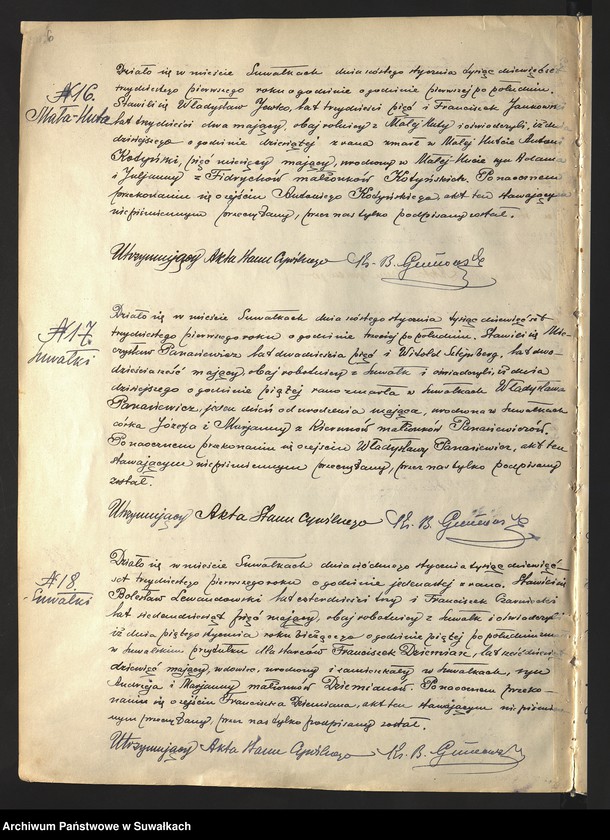 6
№ 16.
Mała-Huta
Działo się w mieście Suwałkach dnia szóstego stycznia tysiąc dziewięćset
trzydziestego pierwszego roku o godzinie pierwszej po południu.
Stawili się Władysław Jewko, lat trzydzieści pięć i Franciszek Jankowski
lat trzydzieści dwa mający, obaj rolnicy z Małej Huty i oświadczyli, iż dnia
dzisiejszego o godzinie dziewiątej z rana zmarł w Małej Hucie Antoni
Kodyński, pięć miesięcy mający, urodzony w Małej-Hucie syn Adama
i Juljanny z Fidrychów małżonków Kodyńskich. Po naocznem
przekonaniu się o zejściu Antoniego Kodyńskiego akt ten stawającym
niepiśmiennym przeczytany, przez nas tylko podpisany został.
Utrzymujący Akta Stanu Cywilnego Ks. B.
№ 17
Suwałki
Działo się w mieście Suwałkach dnia szóstego stycznia tysiąc dziewięćset
trzydziestego pierwszego roku o godzinie trzeciej po południu. Stawili się Mie-
czysław Panasiewicz lat dwadzieścia pięć i Witold lat dwa-
dzieścia sześć mający, obaj robotnicy z Suwałk i oświadczyli, iż dnia
dzisiejszego o godzinie piątej rano zmarła w Suwałkach Władysława
Panasiewicz, jeden dzień od urodzenia mająca, urodzona w Suwałkach
córka Józefa i Marjanny z małżonków Panasiewiczów.
Po naocznem przekonaniu się o zejściu Władysławy Panasiewicz, akt ten
stawającym niepiśmiennym przeczytany, przez nas tylko podpisany
został.
Utrzymujący Akta Stanu Cywilnego Ks. B.
№ 18
Suwałki
Działo się w mieście Suwałkach dnia siódmego stycznia tysiąc dziewięć-
set trzydziestego pierwszego roku o godzinie jedenastej z rana. Stawili się
Bolesław Lewandowski lat czterdzieści trzy i Franciszek Czarniecki
lat siedemdziesiąt pięć mający, obaj robotnicy z Suwałk i oświadczyli
iż dnia piątego stycznia roku bieżącego o godzinie piątej po południu zmarł
w Suwalskim przytułku dla starców Franciszek Dziemian, lat
dziewięć mający, wdowiec, urodzony i zamieszkały w Suwałkach, syn
Andrzeja i Marjanny małżonków Dziemianów. Po naocznem przeko-
naniu się o zejściu Franciszka Dziemiana, akt ten stawającym niepiśmien-
nym przeczytany, przez nas tylko podpisany został.
Utrzymujący Akta Stanu Cywilnego Ks. B.
Archiwum Państwowe w Suwałkach